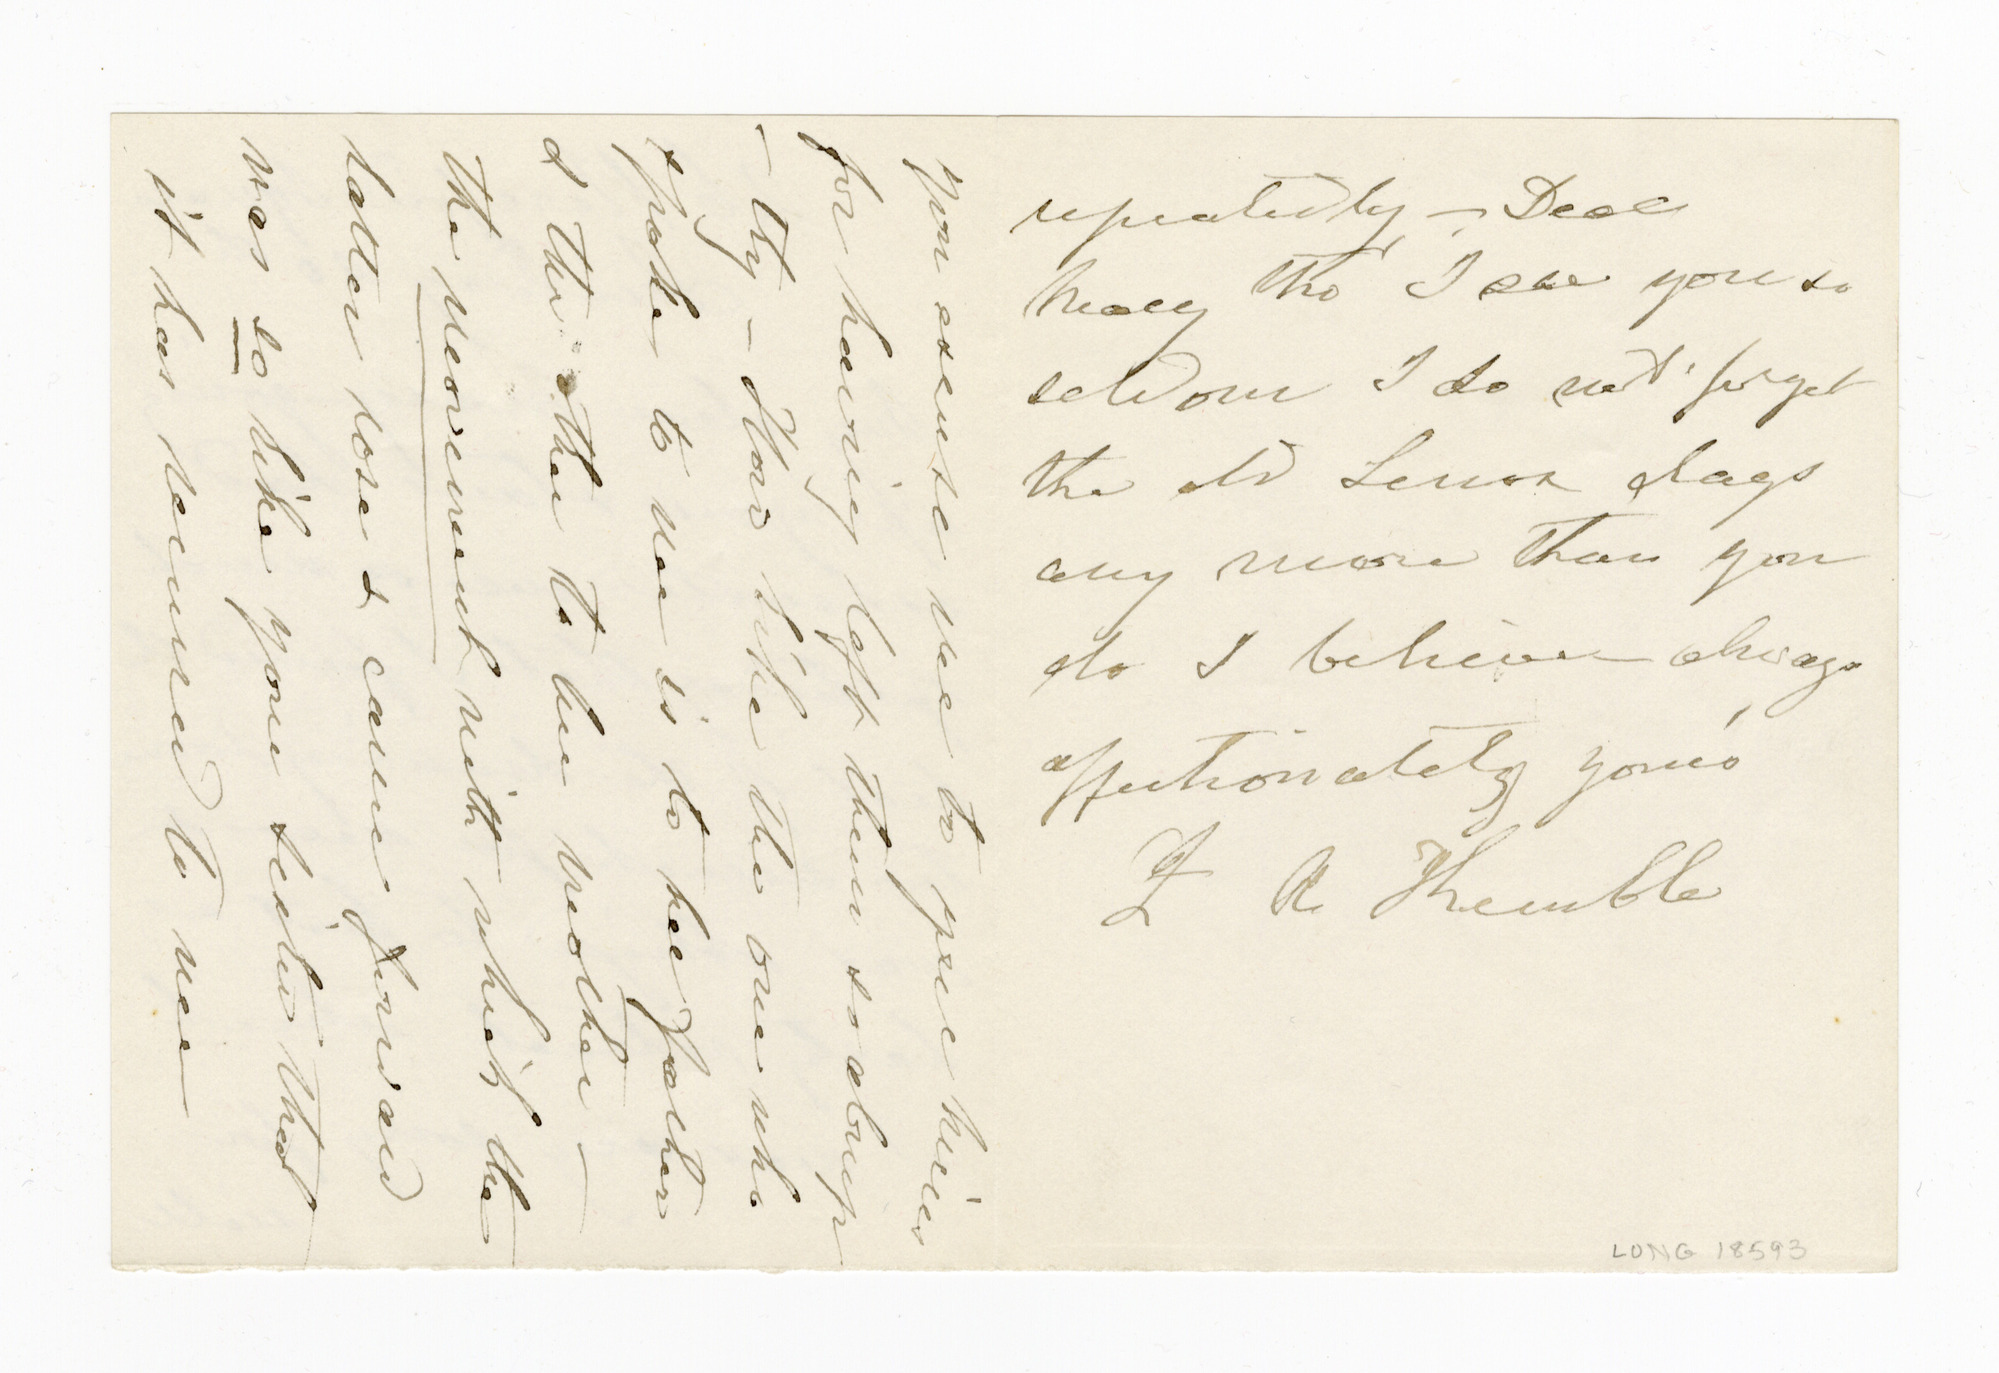 you excuse me to your nieces
for having left them so abrup
- tly - How like the one who
spoke to me is to her father
& the other to her mother -
the movement with which the
latter rose & came forward
was so like your sister that
it has recurred to me
repeatedly - Dear
Mary tho' I see you so
seldom I do not forget
the old Lenox days
any more than you
do I believe always
affectionately yours
F A Kemble
LONG 18593